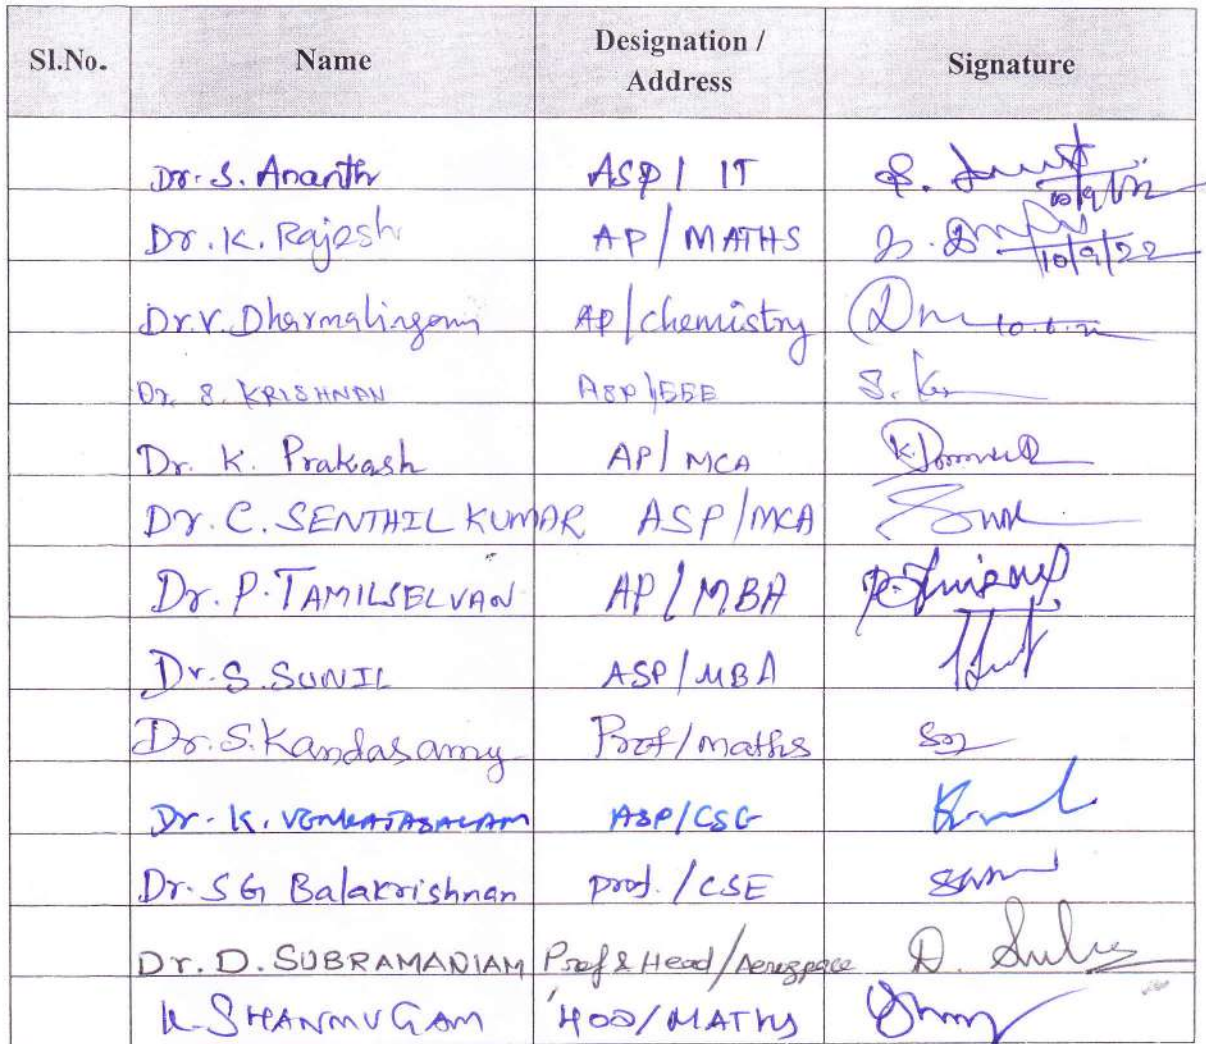 Sl.No. Name Designation / Address Signature
Dr. S. Ananth ASP / IT S.
Dr. K. Rajesh AP / MATHS 10/9/22
Dr. V. Dharmalingam AP / chemistry
Dr. S. KRISHNAN ASP / EEE S.
Dr. K. Prakash AP / MCA
Dr. C. SENTHIL KUMAR ASP / MCA
Dr. P. TAMILSELVAN AP / MBA
Dr. S. SUNIL ASP / MBA
Dr. S. Kandasamy Prof / maths
Dr. K. VENKATASALAM ASP / CSE
Dr. SG Balakrishnan prof. / CSE
Dr. D. SUBRAMANIAM Prof & Head / Aerospace D.
K. SHANMUGAM HOD / MATHS